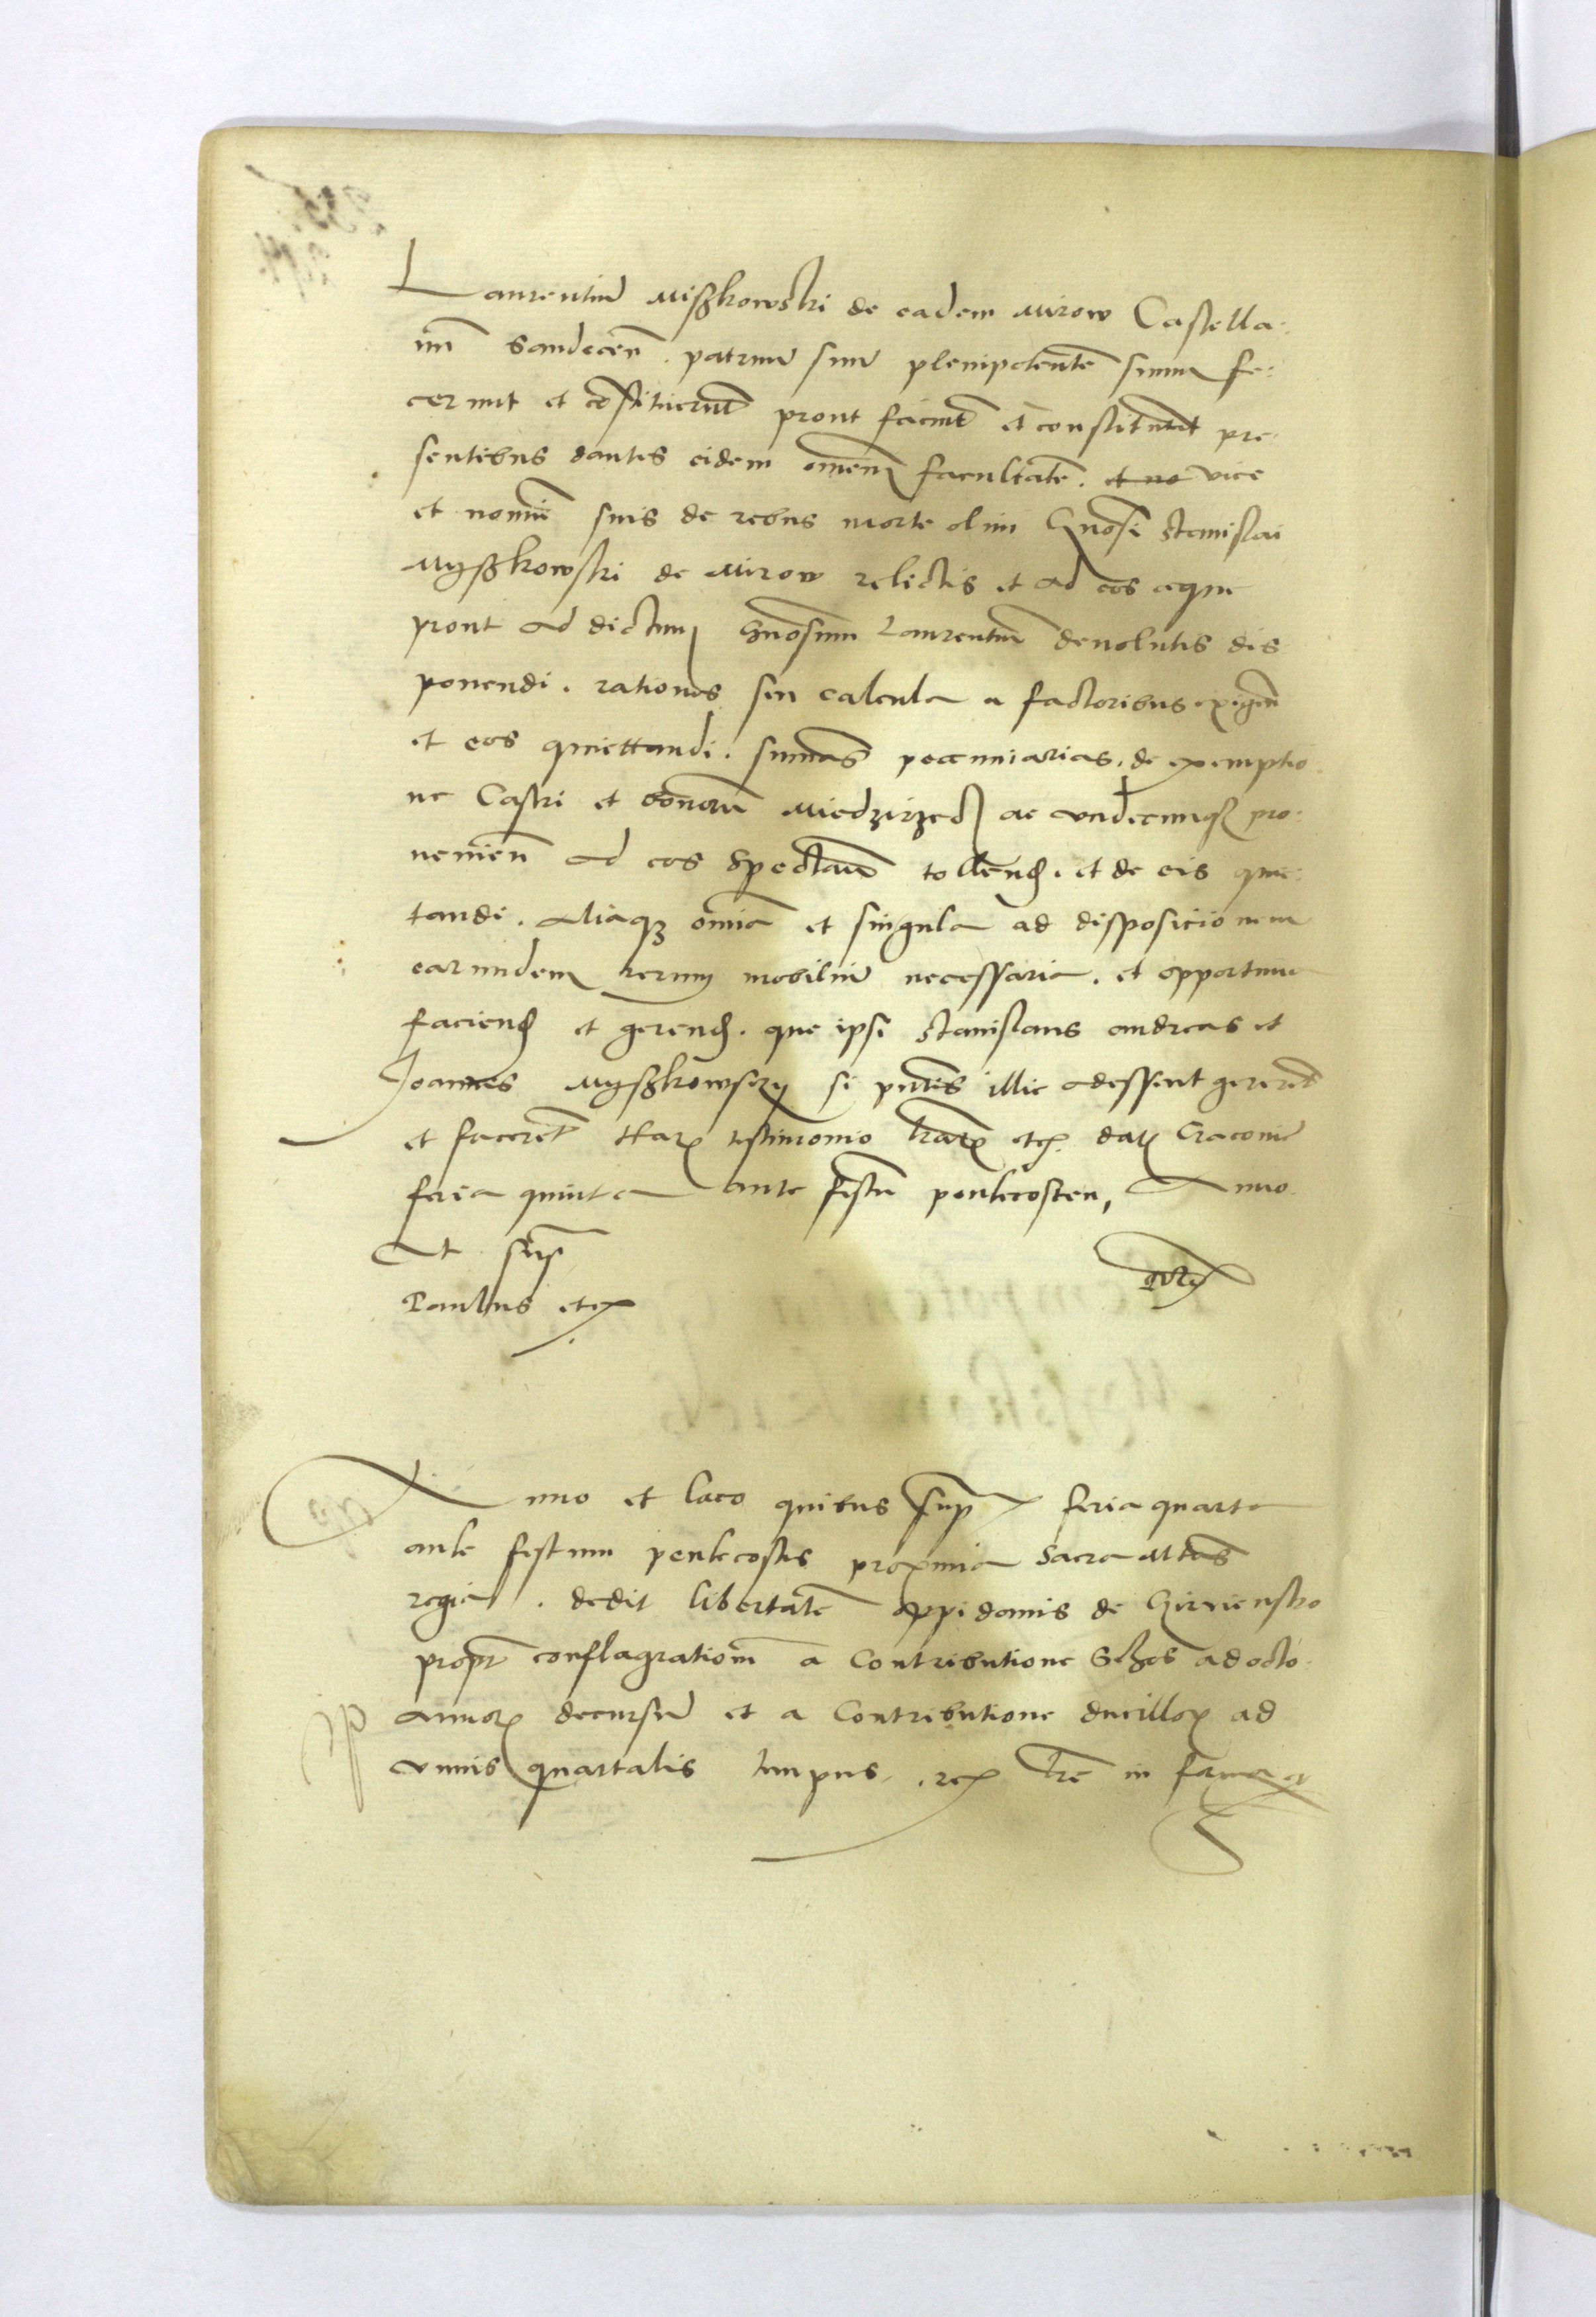 Laurentiū Mißkowski de eadem Mirow Castella:
nū Sandecen̄. patruū suū plenipotentē suum fe:
cerunt et cōstituerūt prout faciūt et constituūt pre
sentibus dantes eidem omnem facultatē. et no vice
et nomīe suis de rebus morte olim Gnosi Stanislai
Myßkowski de Mirow relictis et ad eos eque
prout ad dictum Gnosum Laurentiū devolutis dis
ponendi. rationes seu calcula a factoribus exigen̄
et eos quiettandi. summas pecuniarias. de exemptio
ne Castri et bonorū Miedzirzecz ac undecunqꝫ pro:
venien̄ ad eos spectan̄ tollend. et de eis quie:
tandi. aliaqꝫ omīa et singula ad disposicionem
earundem rerum mobiliū necessaria. et opportuna
faciend et gerend. que ipsi Stanislaus Andreas et
Joannes Myßkowsczy si pntes illic adessent gererēt
et facerēt Harꝫ testimonio lrarꝫ etc. datꝫ Cracovie
feria quinta ante festū pentecosten, Anno
Ut supr
Paulus etc
Anno et loco quibus supr feria quarta
ante festum pentecostes proxima Sacra Mtas
regia. dedit libertatē oppidanis de
propt conflagrationē a Contributione Schos ad octo
annorꝫ decursū et a Contributione ducillorꝫ ad
unius quartalis tempus. lre in